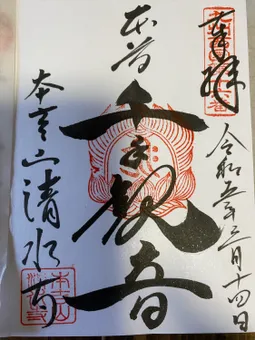 奉拝
令和五年三月十四日
本尊
千手観音
清水寺